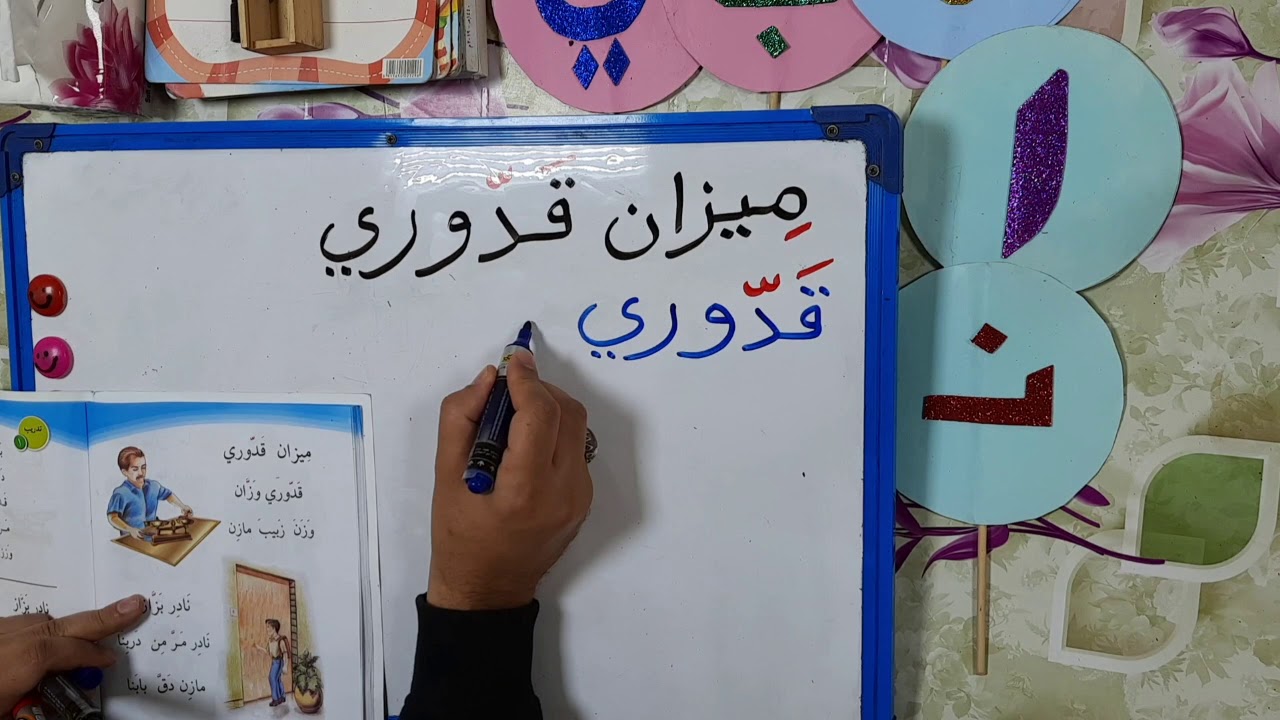 مِيزان قَدّوري
قَدّوري
مِيزان قَدّوري
قَدّوري وَزَّان
وَزَنَ زَبيبَ مازِن
نَادِر بَزَّاز
نَادِر مَرَّ مِن دَربِنَا
مازِن دَقَّ بابَنا
تدريب
نادِر بَزَّاز
ي
ب
ا
ن